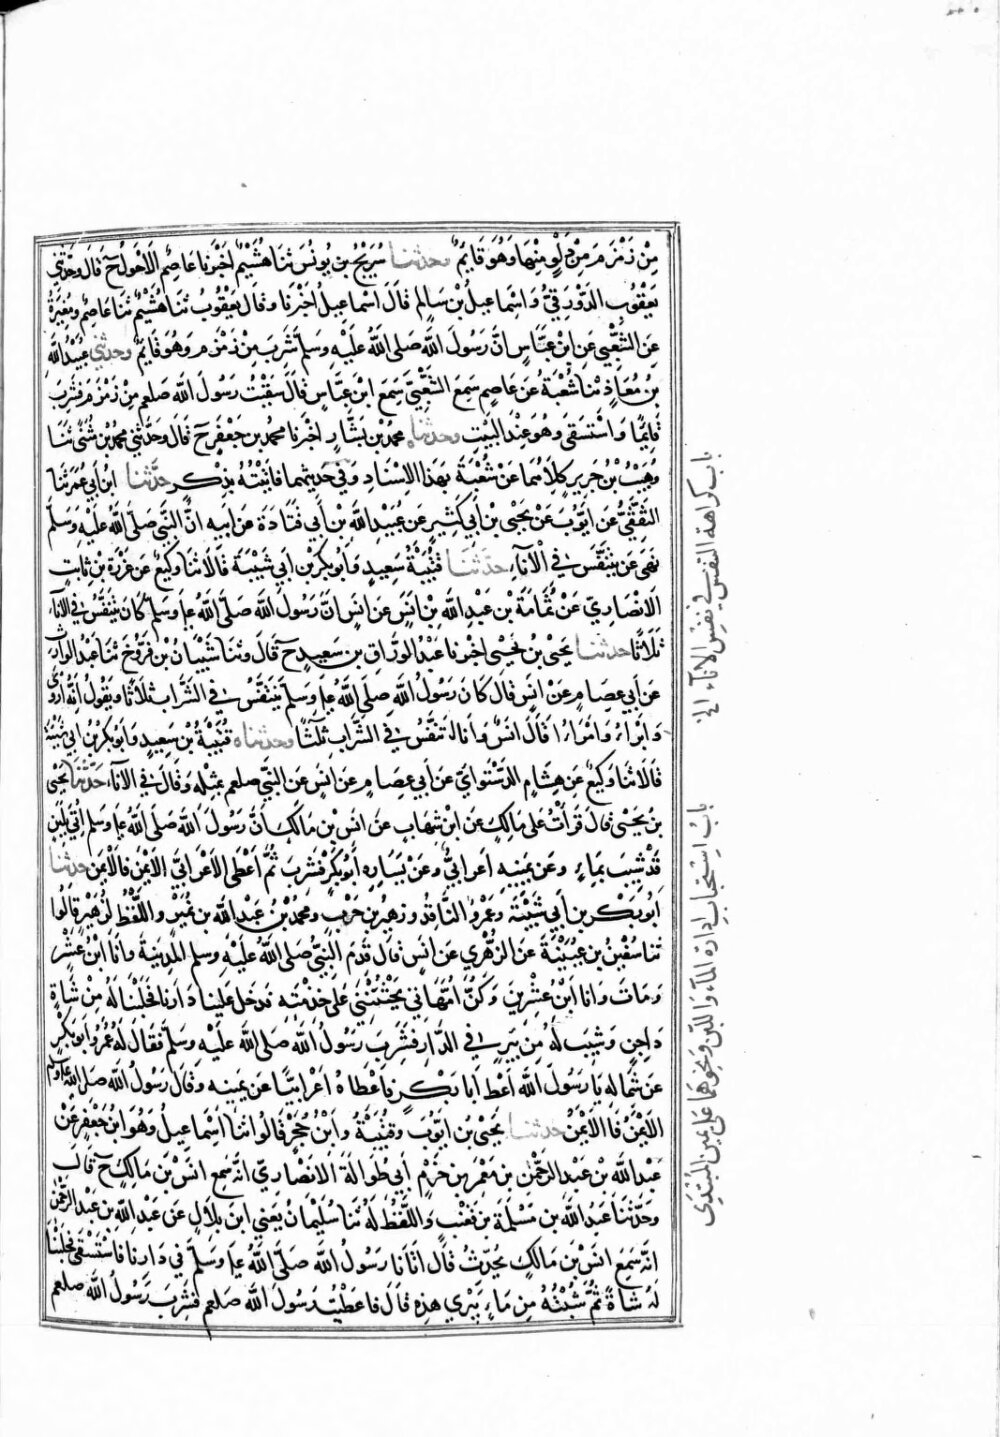 مِنْ زَمْزَمَ مِنْ دَلْوٍ مِنْهَا وَهُوَ قَايِمٌ وحدثنا سُرَيْجُ بن يُونُسَ ثنا هُشَيْمٌ أَخْبَرَنَا عَاصِمٌ الْأَحْوَلُ ح قَالَ وحَدَّثَنِي
يَعْقُوبُ الدَّوْرَقِيُّ وَإِسْمَاعِيلُ بْنُ سَالِمٍ قَالَ اسْمَاعِيلُ أَخْبَرَنَا وَقَالَ يَعْقُوبُ ثنا هُشَيْمٌ ثَنَا عَاصِمٌ ومُغِيرَةُ
عَنِ الشَّعْبِيِّ عَنِ ابْنِ عَبَّاسٍ انَّ رَسُولَ اللَّهِ صَلَّى اللَّهُ عَلَيْهِ وَسَلَّمَ شَرِبَ مِنْ زَمْزَمَ وَهُوَ قَايِمٌ وحدثني عُبَيْدُ اللَّهِ
بْنُ مُعَاذٍ ثنا شُعْبَةُ عَنْ عَاصِمٍ سَمِعَ الشَّعْبِيَّ سَمِعَ ابْنَ عَبَّاسٍ قَالَ سَقَيْتُ رَسُولَ اللَّهِ صلعم مِنْ زَمْزَمَ فَشَرِبَ
قَايِمًا وَاسْتَسْقَى وَهُوَ عِنْدَ الْبَيْتِ وحدثناه محمد بْنُ بَشَّارٍ اخْبَرَنَا محمد بن جَعْفَرٍ ح قَالَ وحَدَّثَنِي محمد بْنُ مُثَنَّى ثَنَا
وُهَيْبُ بْنُ جَرِيرٍ كِلَاهُمَا عَنْ شُعْبَةَ بِهَذَا الْاِسْنَادِ وَفِي حَدِيثِهِمَا فَاتَيْتُهُ بِذِكْرِ حدَّثَنَا ابْنُ أَبِي عُمَرَ ثَنَا
الثَّقَفِيُّ عَنْ ايُّوبَ عَنْ يَحْيَى بْنِ أَبِي كَثِيرٍ عَنْ عُبَيْدِ اللَّهِ بْنِ أَبِي قَتَادَةَ عَنْ ابِيهِ انَّ النَّبِيَّ صَلَّى اللَّهُ عَلَيْهِ وَسَلَّمَ
نَهَى عَنْ يَتَنَفَّسَ فِي الْانَآءِ حَدَّثَنَا قُتَيْبَةُ سَعِيدٍ وَأَبُو بَكْرِ بْنِ أَبِي شَيْبَةَ قَالَا ثَنَا وَكِيعٌ عَنْ عَزْرَةَ بْنِ ثَابِتٍ
الْانْصَارِيِّ عَنْ ثُمَامَةَ بْنِ عَبْدِ اللَّهِ بْنِ انَسٍ عَنْ انَسٍ انَّ رَسُولَ اللَّهِ صَلَّى اللَّهُ عليه وَسَلَّمَ كَانَ يَتَنَفَّسُ فِي الْانَآءِ
ثَلَاثًا حدثنا يَحْيَى بْنُ يَحْيَى اخْبَرَنَا عَبْدُ الْوَرَّاقِ بن سَعِيدٍ ح قَالَ وثنا شَيْبَانُ بْنُ فَرُّوخَ ثنَا عَبْدُ الْوَارِثِ
عَنْ أَبِي عِصَامٍ عَنْ انَسٍ قَالَ كَانَ رَسُولُ اللَّهِ صَلَّى اللَّهُ عليه وَسَلَّمَ يَتَنَفَّسُ فِي الشَّرَابِ ثَلَاثًا ويَقُولُ انَّهُ ارْوَى
وَابْرَاءُ وَامْرَاءُ قَالَ انَسٌ وَأَنَا اتَنَفَّسُ فِي الشَّرَابِ ثَلَثًا وحدثناه قُتَيْبَةُ بْنُ سَعِيدٍ وَابُو بَكْرِ بْنُ ابِي شَيْبَةَ
قَالَا ثنَا وَكِيعٌ عَنْ هِشَامٍ الدَّسْتَوَايِّ عَنْ أَبِي عِصَامٍ عَنْ انَسٍ عَنِ النَّبِيِّ صلعم بِمِثْلِهِ وَقَالَ فِي الْانَآءِ حَدَّثَنَا يَحْيَى
بن يَحْيَى قَالَ قَرَأْتُ عَلَى مَالِكٍ عَنِ ابْنِ شِهَابٍ عَنْ انَسِ بْنِ مَالِكٍ انَّ رَسُولَ اللَّهِ صَلَّى اللَّهُ عليه وسلم اُتِيَ بِلَبَنٍ
قَدْ شِيبَ بِمَاءٍ وَعَنْ يَمِينِهِ اعْرَابِيٌّ وَعَنْ يَسَارِهِ أَبُو بَكْرٍ فَشَرِبَ ثُمَّ اعْطَى الْاعْرَابِيَّ الْايْمَنَ فَالْايْمَنَ حدثنا
ابُو بَكْرِ بن أَبِي شَيْبَةَ وَعَمْرٌو النَّاقِدُ وزُهَيْرُ بن حَرْبٍ ومحمد بْنُ عَبْدِ اللَّهِ بن نُمَيْرٍ وَاللَّفْظُ لِزُهَيْرٍ قَالُوا
ثنا سُفْيٰنُ بن عُيَيْنَةَ عَنِ الزُّهْرِيِّ عَنْ انَسٍ قَالَ قَدِمَ النَّبِيُّ صَلَّى اللَّهُ عَلَيْهِ وسلم الْمَدِينَةَ وَانَا ابْنُ عَشْرٍ
وَمَاتَ وَانَا ابْنُ عِشْرِينَ وَكُنَّ امَّهَاتِي يَحْثُثْنَنِي عَلَى خِدْمَتِهِ فَدَخَلَ عَلَيْنَا دَارَنَا فَحَلَبْنَا لَهُ مِنْ شَاةٍ
دَاجِنٍ وَشِيبَ لَهُ مِنْ بِيرٍ فِي الدَّارِ فَشَرِبَ رَسُولُ اللَّهِ صَلَّى اللَّهُ عَلَيْهِ وَسَلَّمَ فَقَالَ لَهُ عُمَرُ وَابُو بَكْرٍ
عَنْ شِمَالِهِ يَا رَسُولَ اللَّهِ أَعْطِ أَبَا بَكْرٍ فَاعْطَاهُ اعْرَابِيًّا عَنْ يَمِينِهِ وَقَالَ رَسُولُ اللَّهِ صَلَّى اللَّهُ عليه وسلم
الْايْمَنُ فَالْايْمَنُ حدثنا يَحْيَى بن ايُّوبَ وقُتَيْبَةُ وَابْنُ حُجْرٍ قَالُوا ثنا اسْمَاعِيلُ وَهُوَ ابْنُ جَعْفَرٍ عَنْ
عَبْدِ اللَّهِ بْنِ عَبْدِ الرَّحْمٰنِ بن مَعْمَرِ بن حَزْمٍ أَبِي طُوَالَةَ الْانْصَارِيِّ انَّهُ سَمِعَ انَسَ بْنَ مَالِكٍ ح قَالَ
وَحَدَّثَنَا عَبْدُ اللَّهِ بن مَسْلَمَةَ بن قَعْنَبٍ وَاللَّفْظُ لَهُ ثنا سُلَيْمَانُ يَعْنِي ابنَ بِلَالٍ عَنْ عَبْدِ اللَّهِ بْنِ عَبْدِ الرَّحْمٰنِ
انَّهُ سَمِعَ انَسَ بْنَ مَالِكٍ يُحَدِّثُ قَالَ اتَانَا رَسُولُ اللَّهِ صَلَّى اللَّهُ عليه وَسَلَّمَ فِي دَارِنَا فَاسْتَسْقَى فَحَلَبْنَا
لَهُ شَاةً ثُمَّ شُبْتُهُ مِنْ مَاءِ بِيرِي هَذِهِ قَالَ فَاعْطَيْتُ رَسُولَ اللَّهِ صلعم فَشَرِبَ رَسُولُ اللَّهِ صلعم
باب كراهة التنفس في نفس الانآء
باب استحباب ادارة المآء واللبن ونحوهما على يمين المبتدى